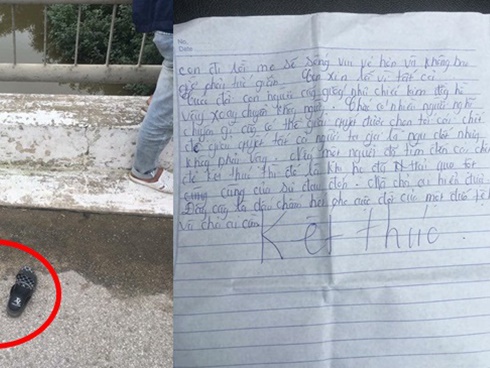 No.
Date
con đi rồi mẹ sẽ sống vui vẻ hơn và không bao
giờ phải tức giận. Con xin lỗi vì tất cả
Cuộc đời con người cũng giống như chiếc kim đồng hồ
vậy xoay chuyển không ngừng. Chỉ có nhiều người nghĩ
chuyện gì cũng có thể giải quyết được chọn cái chết
để giải quyết tất cả người ta gọi là ngu dốt nhưng
không phải vậy. Nếu một người đã tìm đến cái chết
để kết thúc thì đó là khi họ đã trải qua tột
cùng của sự đau đớn. Mà chả ai hiểu được
Đây cũng là dấu chấm hết cho cuộc đời của một
và chả ai cần
Kết thúc.